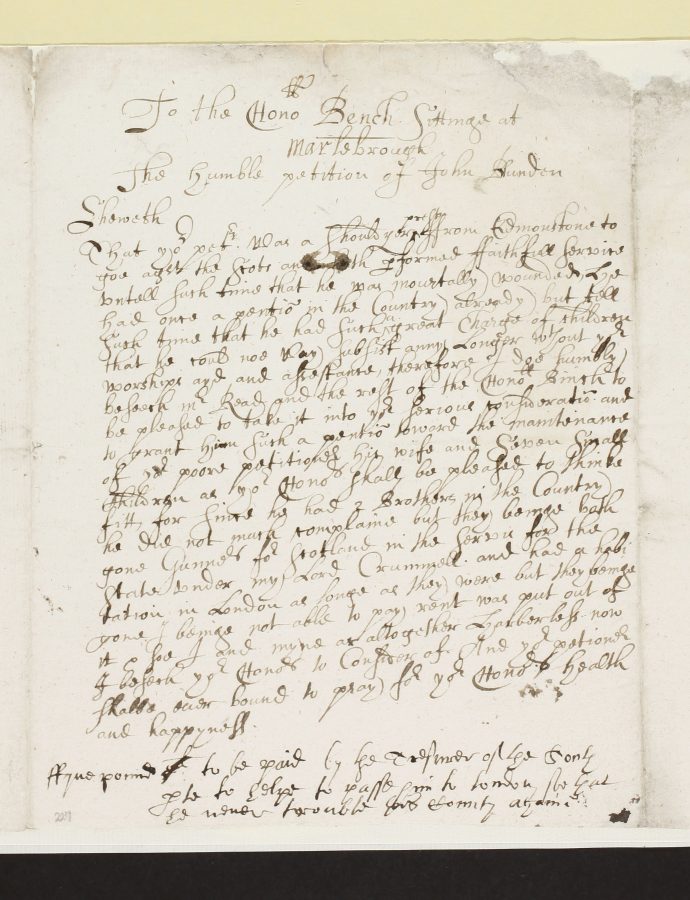 To the Honoble Bench Sittinge at
Marlebrough
The humble petition of John Bunden
Sheweth
That yor petr was a Shouldyer prest from Edmonstone to
goe agst the Scots and hath pformed ffaithfull Service
untell Such time that he was mourtally wounded, he
had once a pentio in the Country already but tell
Such time that he had Such great Charge of children
that he could noe way Subsist anny Longer wthout yor
worships ayd and assestance, therefore I doe humbly
beseech mr Read and the rest of the Honoble Binch to
be pleased to take it into yor serious consideratio and
to grant him Such a pentio toward the maintenance
of yor poore petitioner his wife and Seven Small
Children as yor Honors shall be pleased to thinke
fitt, for Since he had 2 Brothers in the Country
he did not much complaine but they beinge both
gone Gunners for Scotland in the Servis for the
State under my Lord Crummell and had a habi
tation in London as longe as they were but they beinge
gone I beinge not able to pay rent was put out of
it soe I and myne ar altogether Harberless now
I beseech yor Honors to Consider of And yor petioner
shalbe ever bound to pray for yor Honors health
and happyness.
ffyve pound to be paid by the Tresurer of the South
pte to helpe to passe him to London so that
he never trouble this County againe
2021